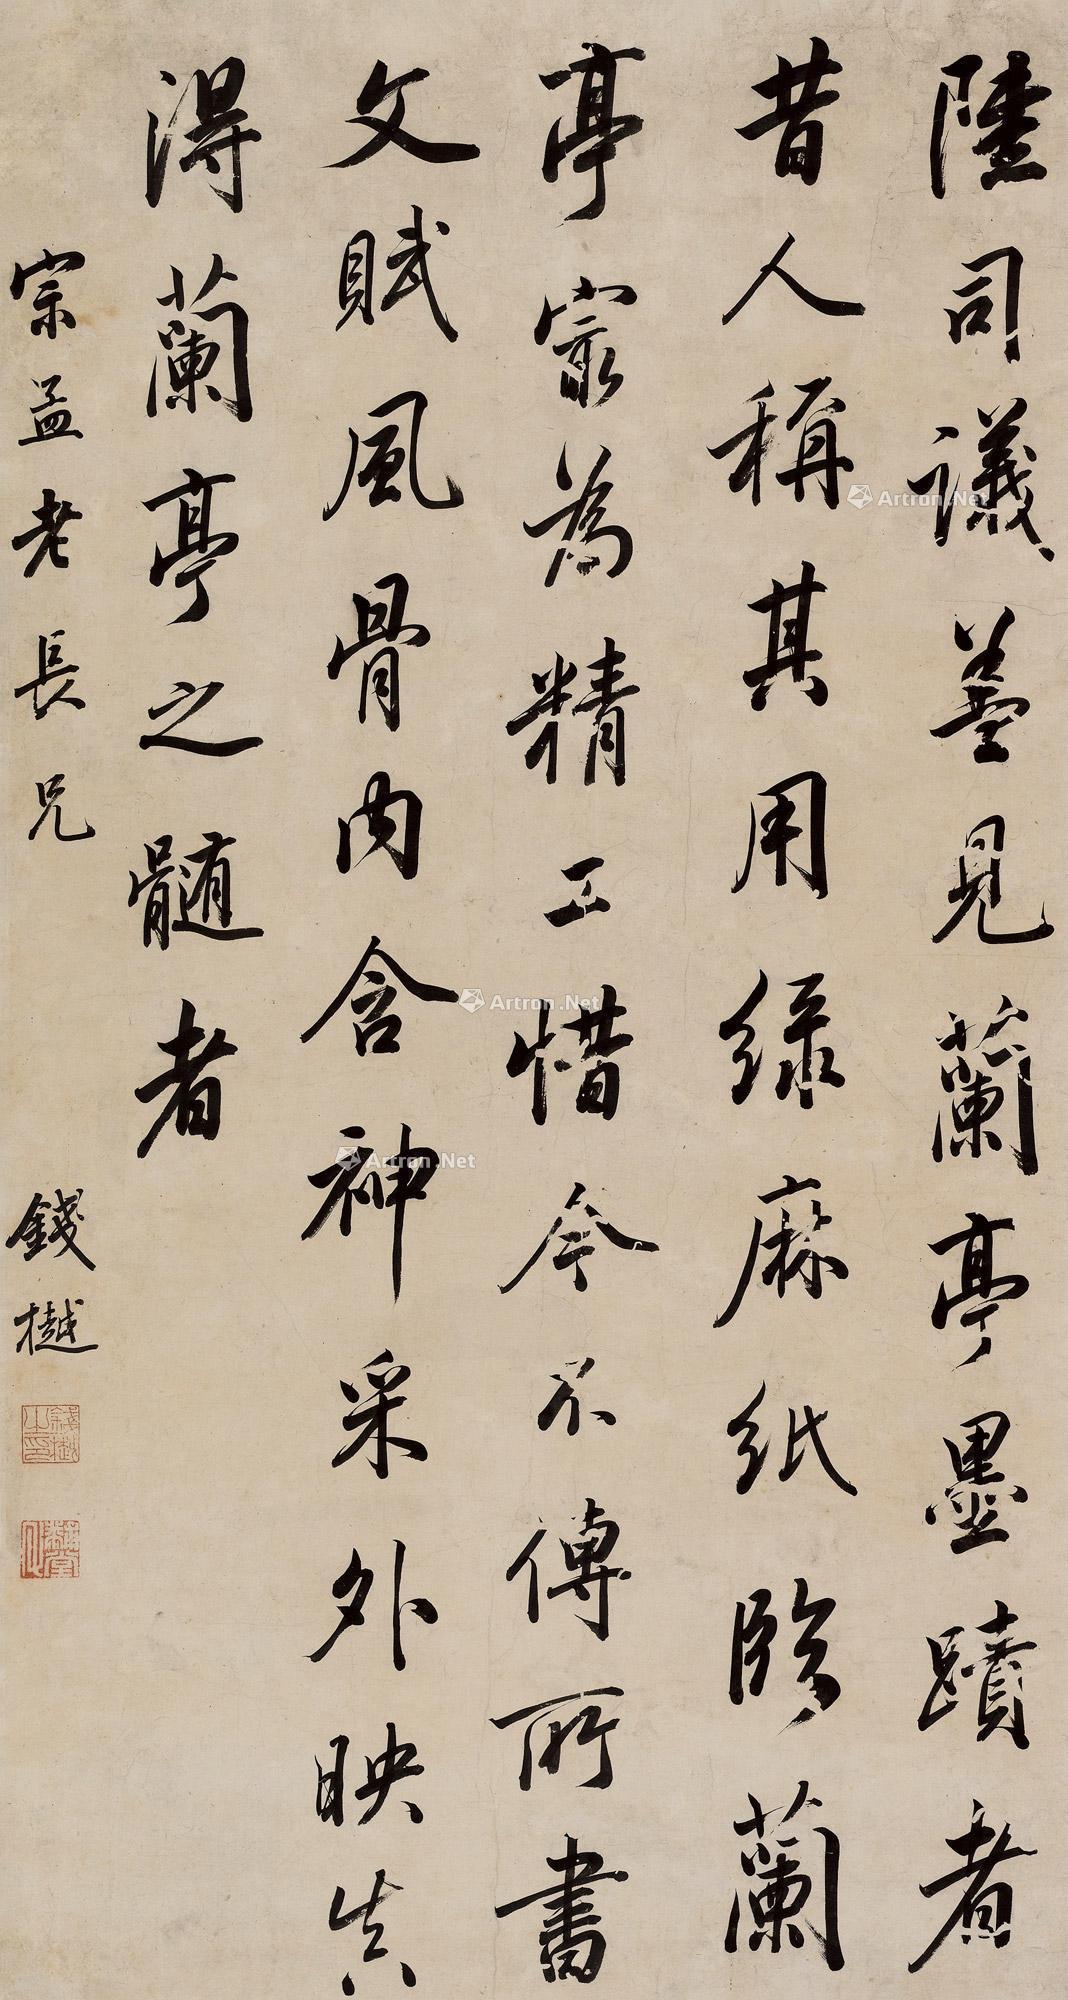 陸司議葢見蘭亭墨蹟者
昔人稱其用綠麻紙臨蘭
亭宲為精工惜今不傳所書
文賦風骨內含神采外映真
得蘭亭之髓者
宗孟老長兄
錢樾
錢樾之印
Artron.Net
Artron.Net
Artron.Net